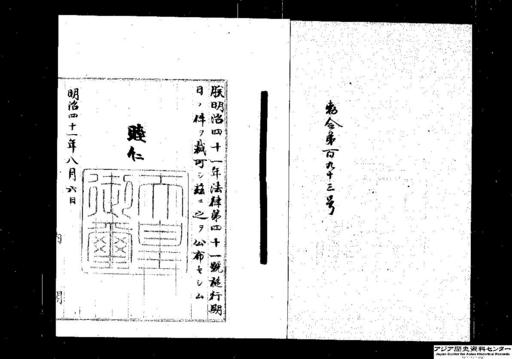 勅令第百九十三号
朕明治四十一年法律第四十一號施行期
日ノ件ヲ裁可シ茲ニ之ヲ公布セシム
睦仁
天皇御璽
明治四十一年八月六日
内閣
アジア歴史資料センター
Japan Center for Asian Historical Records